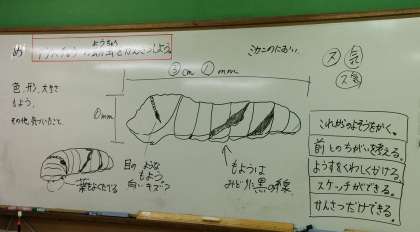 め
ようちゅう
ミカンのにおい
色、形、大きさ
もよう。
その他、気づいたこと。
② cm ① mm
ス 気
ス気
これからのよそうをかく。
前とのちがいを考える。
ようすをくわしくかける。
スケッチができる。
かんさつだけできる。
目のような
もよう。
もようは
みどりに黒の線
葉をたべてる